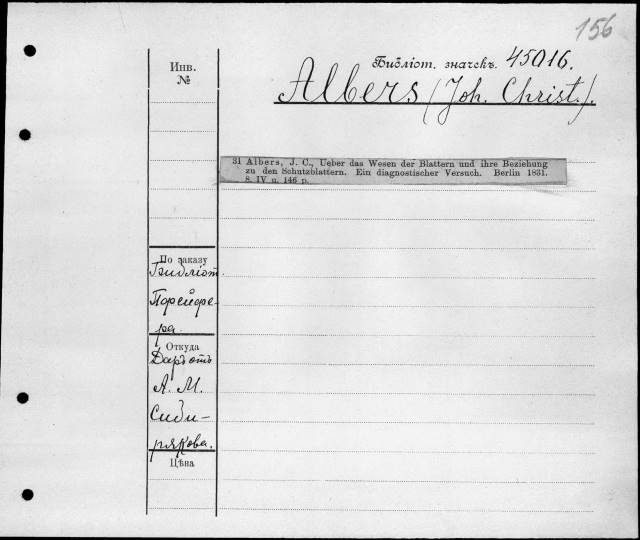 156
Библіот. значекъ. 45016.
Инв.
№
Albers (Joh. Christ.).
31 Albers, J. C., Ueber das Wesen der Blattern und ihre Beziehung
zu den Schutzblattern. Ein diagnostischer Versuch. Berlin 1831.
8. IV u. 146 p.
По заказу
Библіот.
Пфейффе-
ра.
Откуда
Даръ отъ
А. М.
Сиби-
рякова.
Цѣна